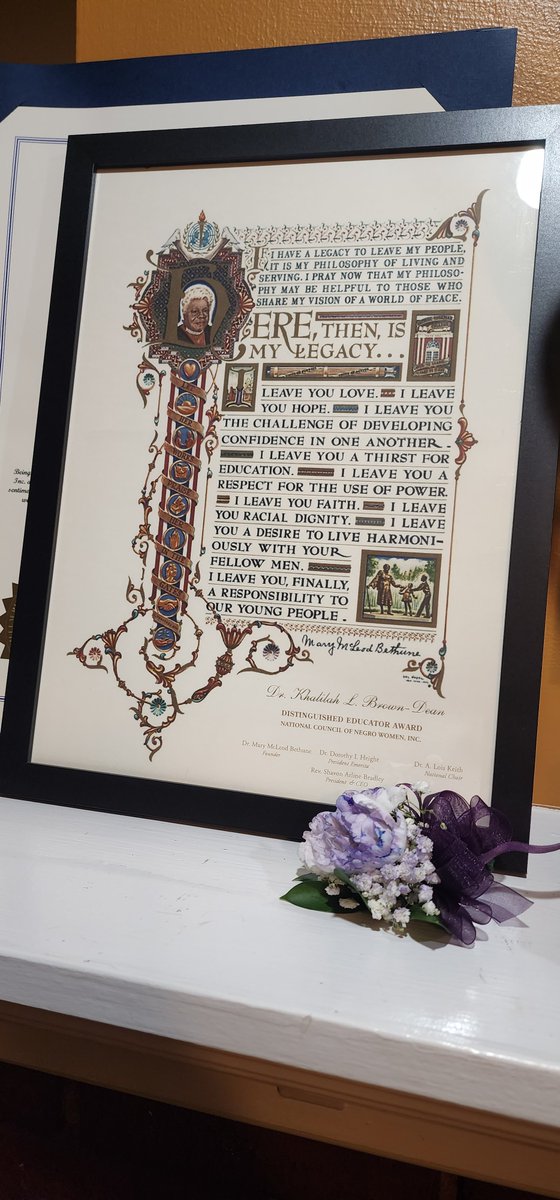 I HAVE A LEGACY TO LEAVE MY PEOPLE,
IT IS MY PHILOSOPHY OF LIVING AND
SERVING. I PRAY NOW THAT MY PHILOSO-
PHY MAY BE HELPFUL TO THOSE WHO
SHARE MY VISION OF A WORLD OF PEACE.
HERE, THEN, IS
MY LEGACY...
I LEAVE YOU LOVE. I LEAVE
YOU HOPE. I LEAVE YOU
THE CHALLENGE OF DEVELOPING
CONFIDENCE IN ONE ANOTHER.
I LEAVE YOU A THIRST FOR
EDUCATION. I LEAVE YOU A
RESPECT FOR THE USE OF POWER.
I LEAVE YOU FAITH. I LEAVE
YOU RACIAL DIGNITY. I LEAVE
YOU A DESIRE TO LIVE HARMONI-
OUSLY WITH YOUR
FELLOW MEN.
I LEAVE YOU, FINALLY,
A RESPONSIBILITY TO
OUR YOUNG PEOPLE.
Mary McLeod Bethune
Dr. Khalilah L. Brown-Dean
DISTINGUISHED EDUCATOR AWARD
NATIONAL COUNCIL OF NEGRO WOMEN, INC.
Dr. Mary McLeod Bethune
Founder
Dr. Dorothy I. Height
President Emerita
Dr. A. Lois Keith
National Chair
Rev. Sharon Atline Bradley
President & CEO
Being
Inc. o
sentime